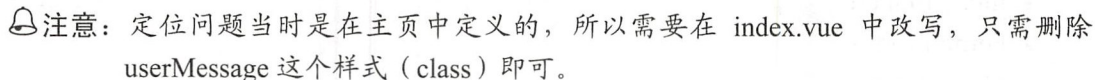 注意：定位问题当时是在主页中定义的，所以需要在 index.vue 中改写，只需删除
userMessage 这个样式（class）即可。